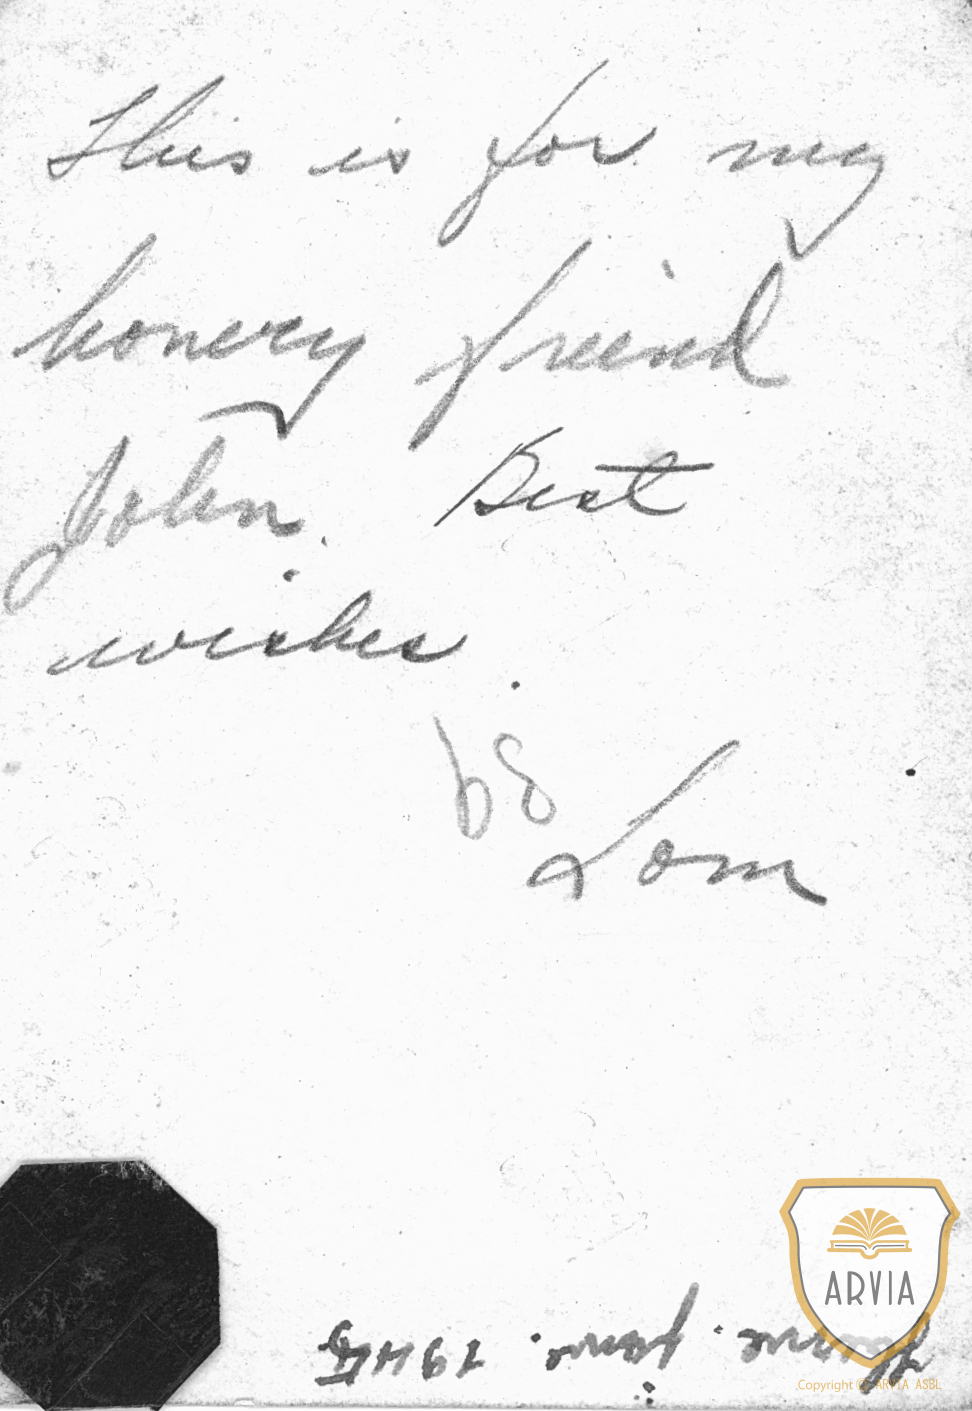 This is for my
honery friend
John. Best
wishes.
68
Tom
ARVIA
Copyright © ARVIA ASBL